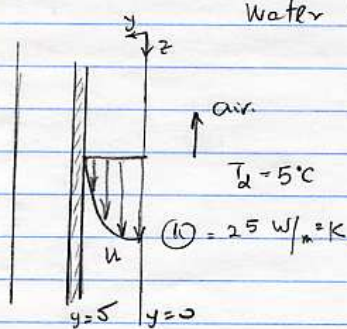 Water
y
z
air.
T_d = 5°C
ⓗ = 25 W/m²K
u
y=δ y=0